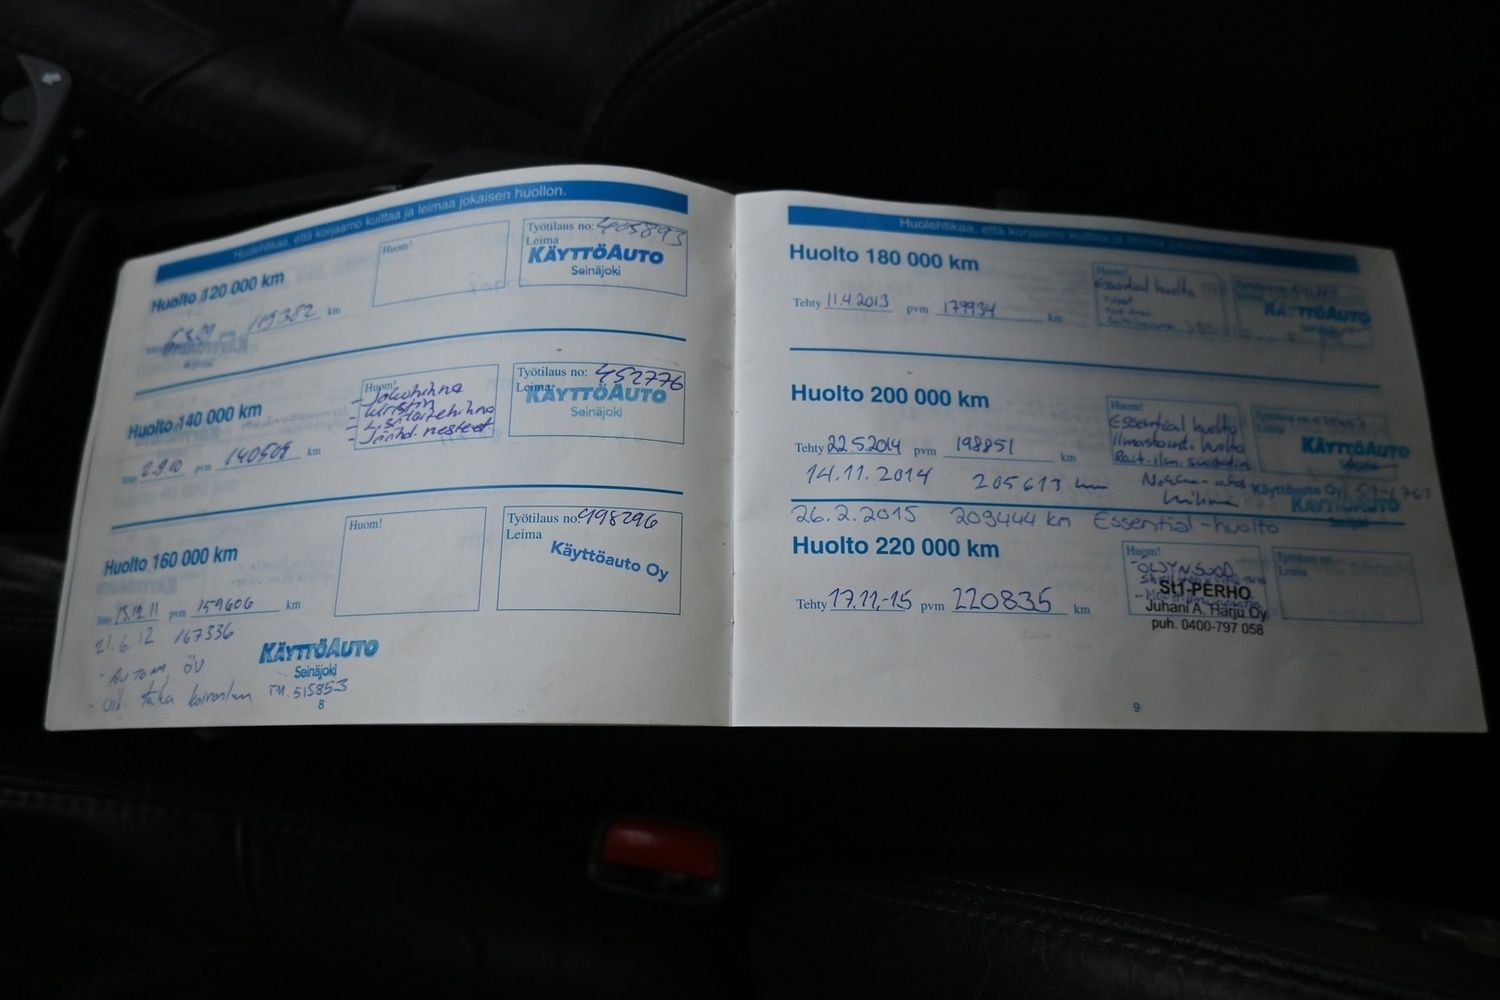 Huolehtikaa, että korjaamo kuittaa ja leimaa jokaisen huollon.
Huolto 120 000 km
119382 km
Huom!
Työtilaus no: 405893
Leima
KÄYTTÖAUTO
Seinäjoki
Huolto 140 000 km
2.9.10 pvm 140509 km
Huom!
- Jakohihna
- kiristin
- Laitehihna
- Jäähd. nesteet
Työtilaus no: 452776
Leima
KÄYTTÖAUTO
Seinäjoki
Huolto 160 000 km
Tehty 15.12.11 pvm 159606 km
Huom!
Työtilaus no: 498296
Leima
Käyttöauto Oy
21.6.12 167336
- AUTOM. ÖV
taka
KÄYTTÖAUTO
Seinäjoki
TM. 515853
8
Huolehtikaa, että korjaamo kuittaa ja leimaa jokaisen huollon.
Huolto 180 000 km
Tehty 11.4.2013 pvm 179934 km
Huom!
Essential huolto
KÄYTTÖAUTO
Seinäjoki
Huolto 200 000 km
Tehty 22.5.2014 pvm 198851 km
Huom!
Essential huolto
Ilmastoint. huolto
Rait. ilm. suodatin
Työtilaus no:
Leima
KÄYTTÖAUTO
Seinäjoki
14.11.2014 205613 km
hihna
Käyttöauto Oy
KÄYTTÖAUTO
Seinäjoki
26.2.2015 209444 km Essential-huolto
Huolto 220 000 km
Tehty 17.11.-15 pvm 220835 km
Huom!
-ÖLJYNSUOD.
St1-PERHO
Juhani A. Harju Oy
puh. 0400-797 058
Työtilaus no:
Leima
9